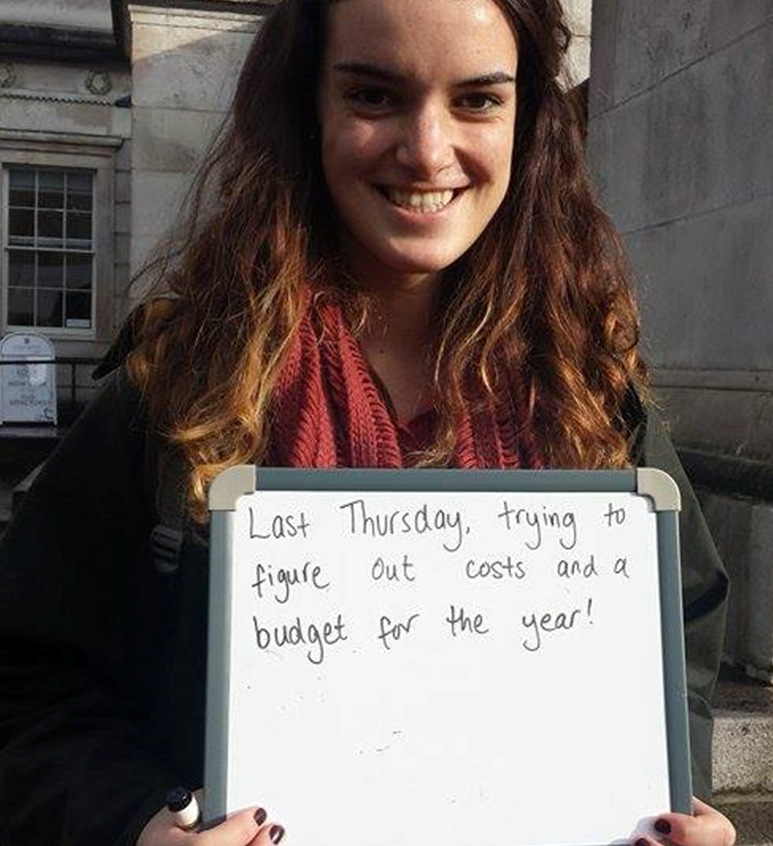 Last Thursday, trying to
figure out costs and a
budget for the year!